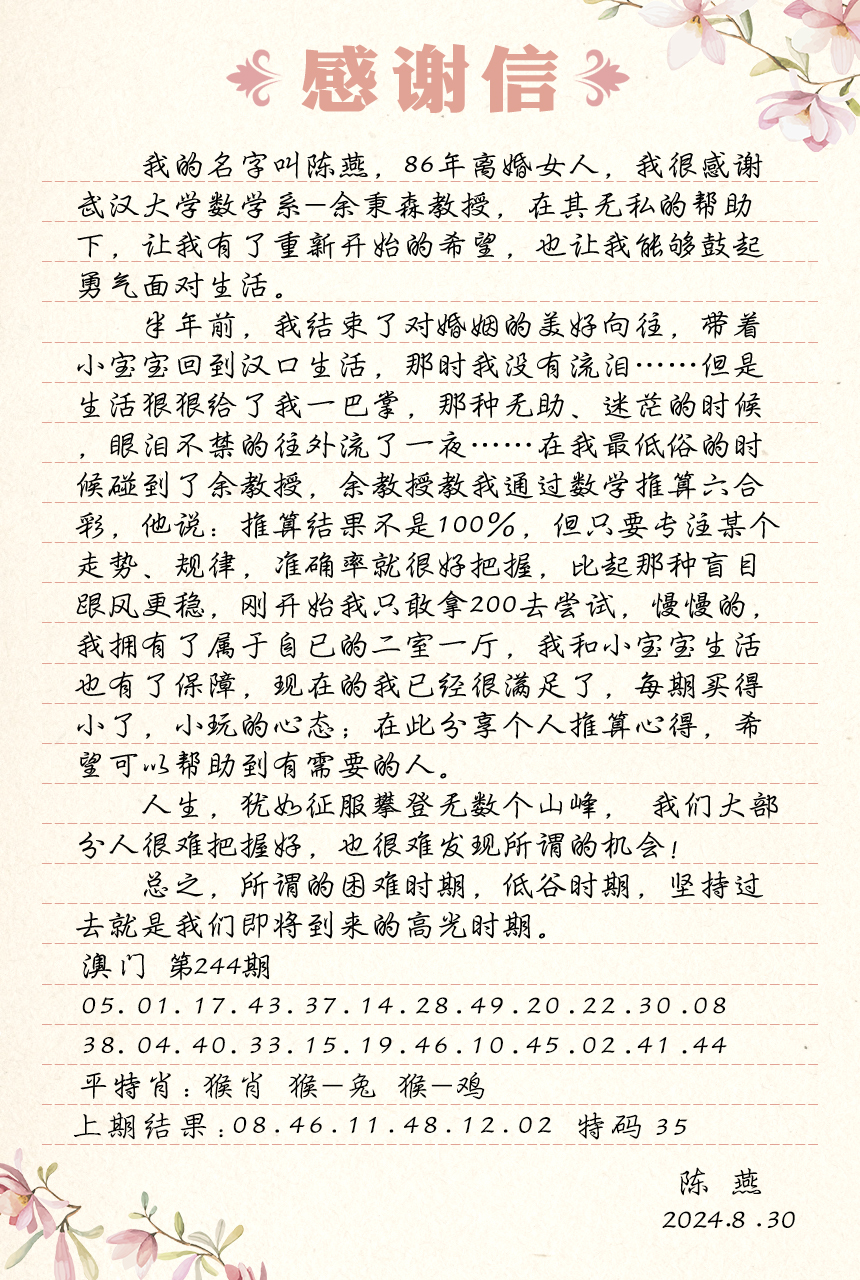 感谢信
我的名字叫陈燕，86年离婚女人，我很感谢
武汉大学数学系—余秉森教授，在其无私的帮助
下，让我有了重新开始的希望，也让我能够鼓起
勇气面对生活。
半年前，我结束了对婚姻的美好向往，带着
小宝宝回到汉口生活，那时我没有流泪……但是
生活狠狠给了我一巴掌，那种无助、迷茫的时候
，眼泪不禁的往外流了一夜……在我最低俗的时
候碰到了余教授，余教授教我通过数学推算六合
彩，他说：推算结果不是100%，但只要专注某个
走势、规律，准确率就很好把握，比起那种盲目
跟风更稳，刚开始我只敢拿200去尝试，慢慢的，
我拥有了属于自已的二室一厅，我和小宝宝生活
也有了保障，现在的我已经很满足了，每期买得
小了，小玩的心态；在此分享个人推算心得，希
望可以帮助到有需要的人。
人生，犹如征服攀登无数个山峰， 我们大部
分人很难把握好，也很难发现所谓的机会！
总之，所谓的困难时期，低谷时期，坚持过
去就是我们即将到来的高光时期。
澳门 第244期
05.01.17.43.37.14.28.49.20.22.30.08
38.04.40.33.15.19.46.10.45.02.41.44
平特肖：猴肖 猴—兔 猴—鸡
上期结果：08.46.11.48.12.02 特码 35
陈 燕
2024.8.30